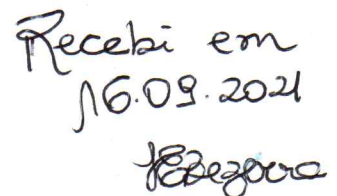 Recebi em
16.09.2021